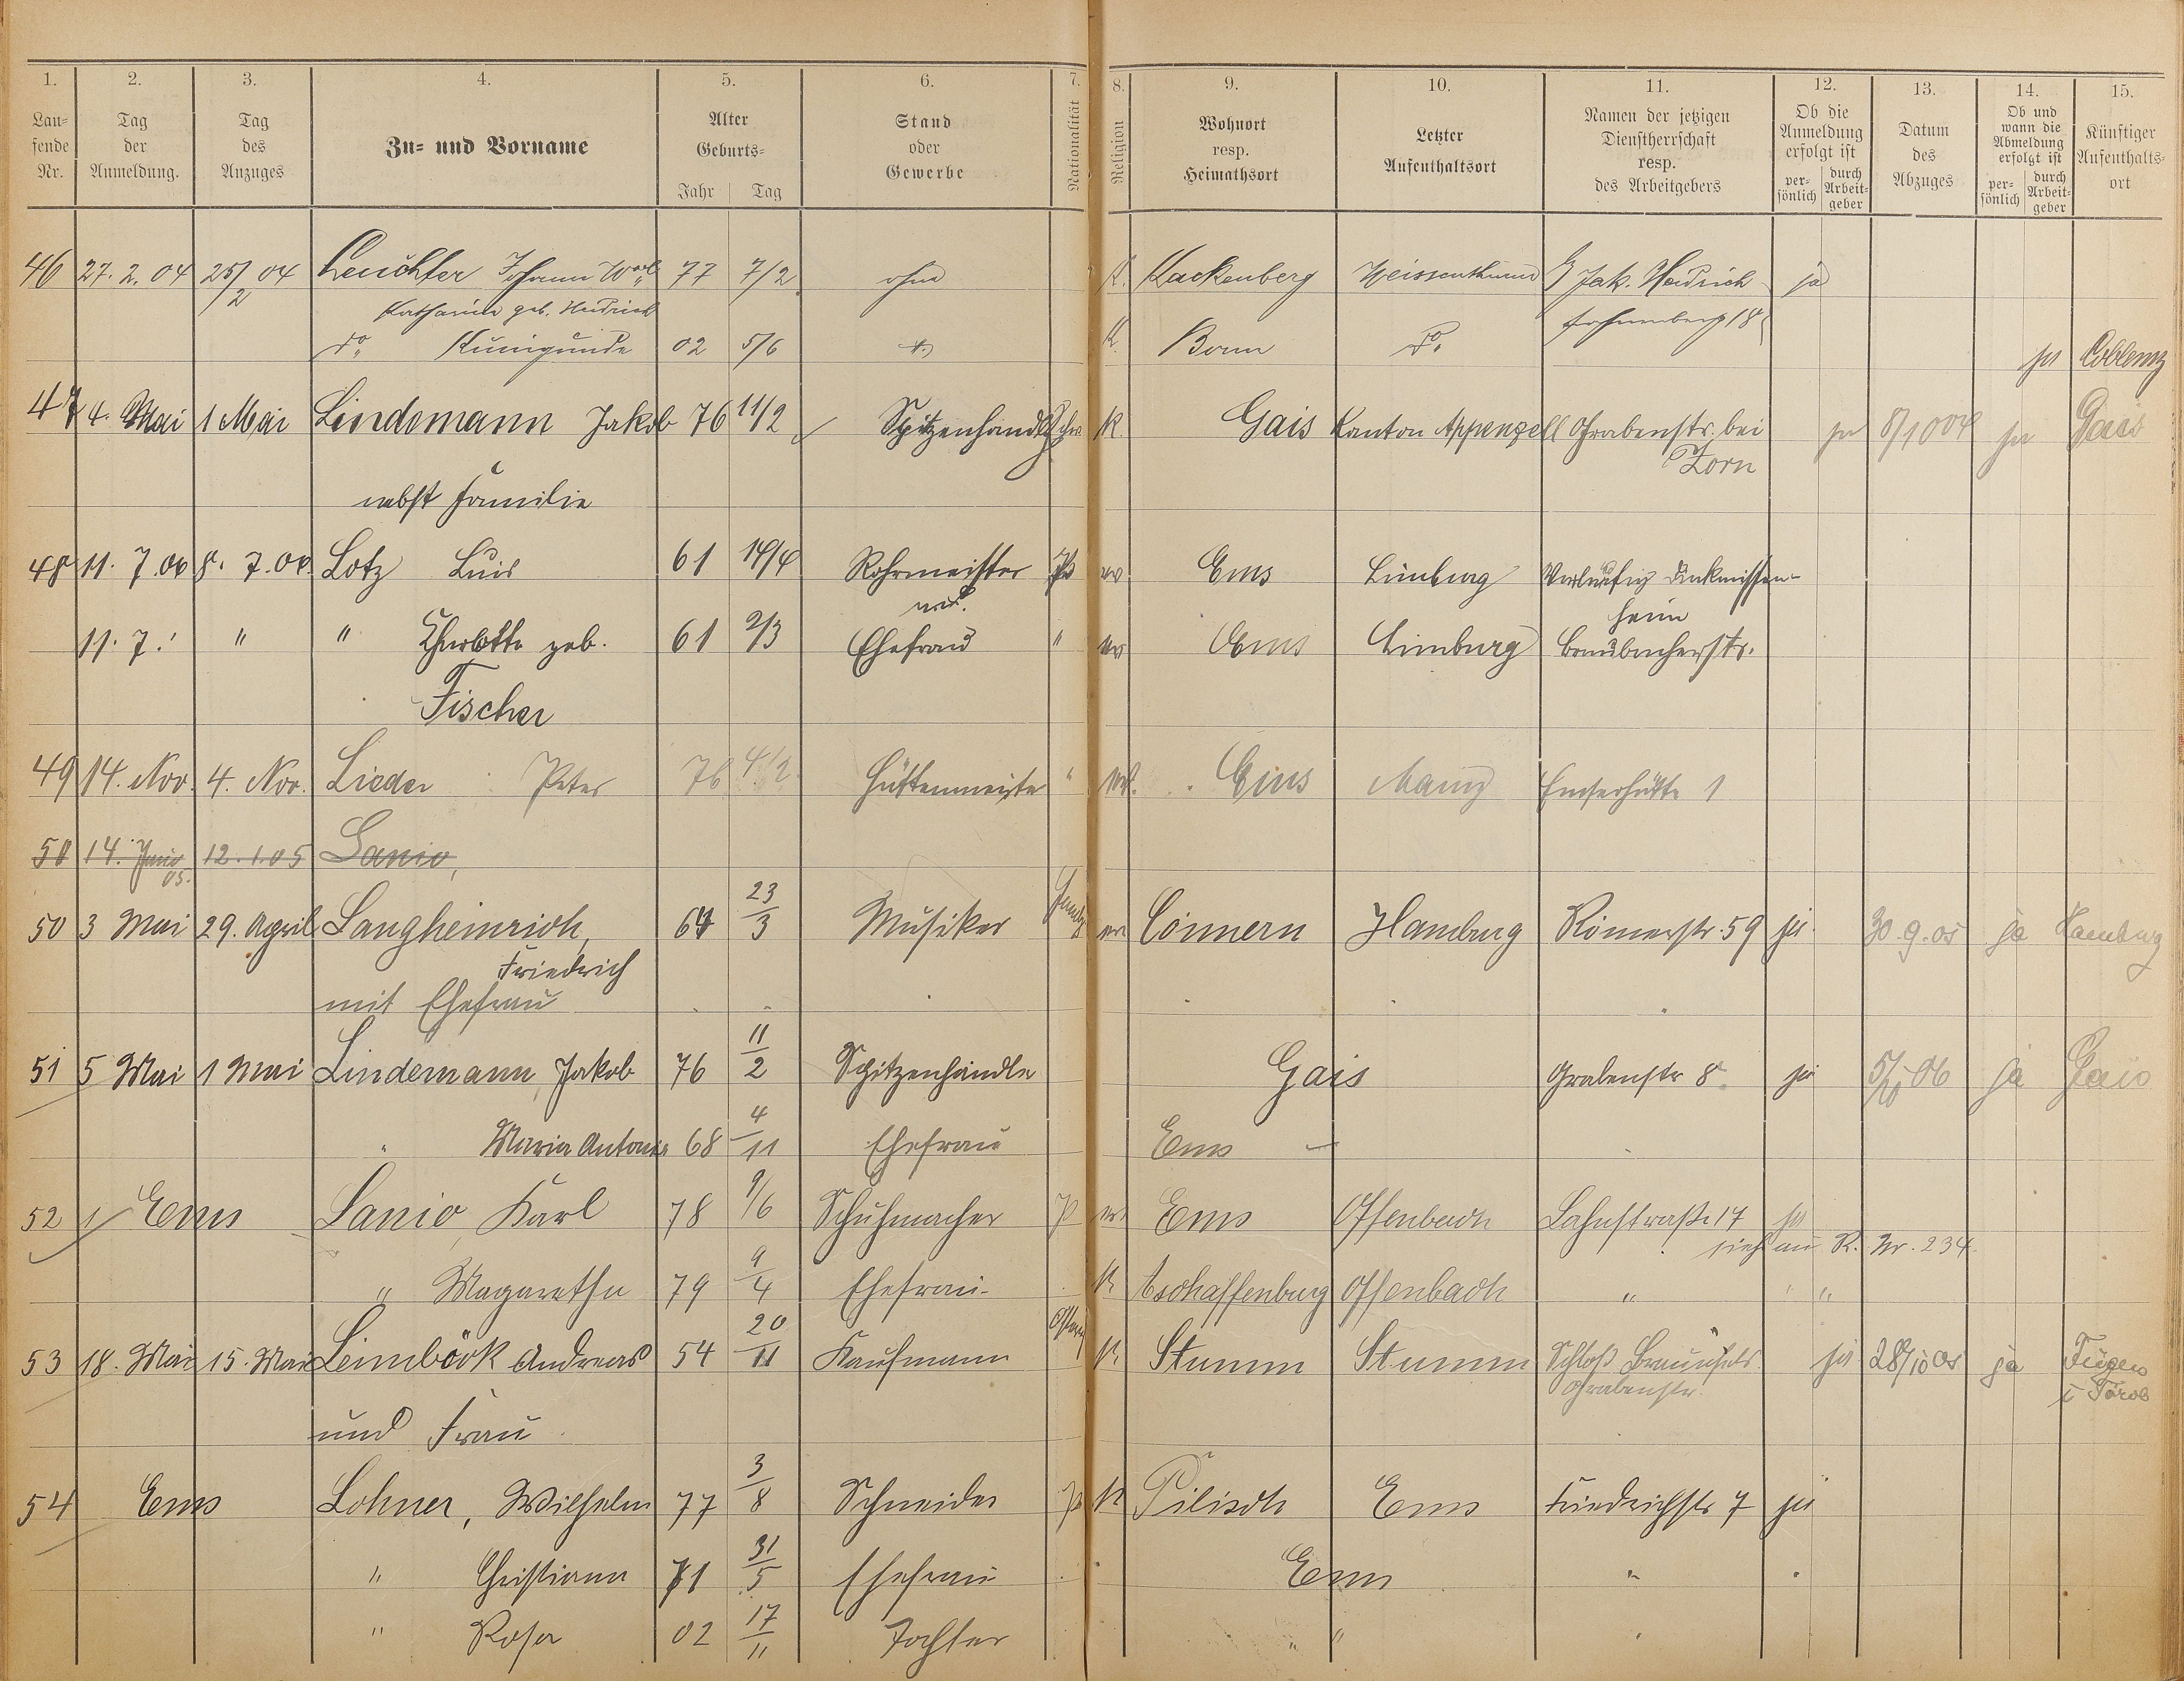 1. 2. 3. 4. 5. 6. 7. 8. 9. 10. 11. 12. 13. 14. 15.
Lau=
fende
Nr.
Tag
der
Anmeldung.
Tag
des
Anzuges
Zu= und Vorname
Alter
Geburts=
Jahr Tag
Stand
oder
Gewerbe
Nationalität
Religion
Wohnort
resp.
Heimathsort
Letzter
Aufenthaltsort
Namen der jetzigen
Dienstherrschaft
resp.
des Arbeitgebers
Ob die
Anmeldung
erfolgt ist
per=
sönlich
durch
Arbeit=
geber
Datum
des
Abzuges
Ob und
wann die
Abmeldung
erfolgt ist
per=
sönlich
durch
Arbeit=
geber
Künftiger
Aufenthalts=
ort
46 27. 2. 04 25/2 04 Leuchter Johann 77 7/2 ohne K. Kackenberg Weissenthurm Jak. Heidrich ja
Katharina geb. Heidrich
do Kunigunde 02 5/6 K. Bonn do ja Coblenz
47 4. Mai 1 Mai Lindemann Jakob 76 11/2 Spitzenhändler K. Gais Kanton Appenzell Grabenstr. bei ja 8/10 04 ja Gais
Zorn
nebst Familie
48 11. 7. 04 8. 7. 04. Lotz Luis 61 14/4 Rohrmeister Pr ev Ems Limburg Vorläufig Diakonissen-
heim
11. 7. " " Charlotte geb. 61 2/3 Ehefrau " ev Ems Limburg Braubacherstr.
Fischer
49 14. Nov. 4. Nov. Lieder Peter 76 4/2 Hüttenmeister " Ems Mainz Emserhütte 1
50 14. Juni 05. 12. 1. 05 Lanio,
50 3 Mai 29. April Langheinrich, 64 23/3 Musiker ev Cönnern Hamburg Römerstr. 59 ja 30. 9. 05 ja Hamburg
Friedrich
mit Ehefrau
51 5 Mai 1 Mai Lindemann, Jakob 76 11/2 Spitzenhändler Gais Grabenstr 8 ja 5/10 06 ja Gais
" Maria Antonie 68 4/11 Ehefrau Ems
52 Ems Lanio, Karl 78 9/6 Schuhmacher P ev Ems Offenbach Lahnstraße 17 ja
R. Nr. 234.
" Magaretha 79 9/4 Ehefrau K Aschaffenburg Offenbach " " "
53 18. Mai 15. Mai Leimböck Andreas 54 20/11 Kaufmann K. Stumm Stumm Schloß Braunfels ja 28/10 05 ja Fügen
Grabenstr. i Tirol
und Frau
54 Ems Lohner, Wilhelm 77 3/8 Schneider P K Pilisch Ems Friedrichstr 7 ja
" Christiana 71 31/5 Ehefrau Ems "
" Rosa 02 17/11 Tochter " "